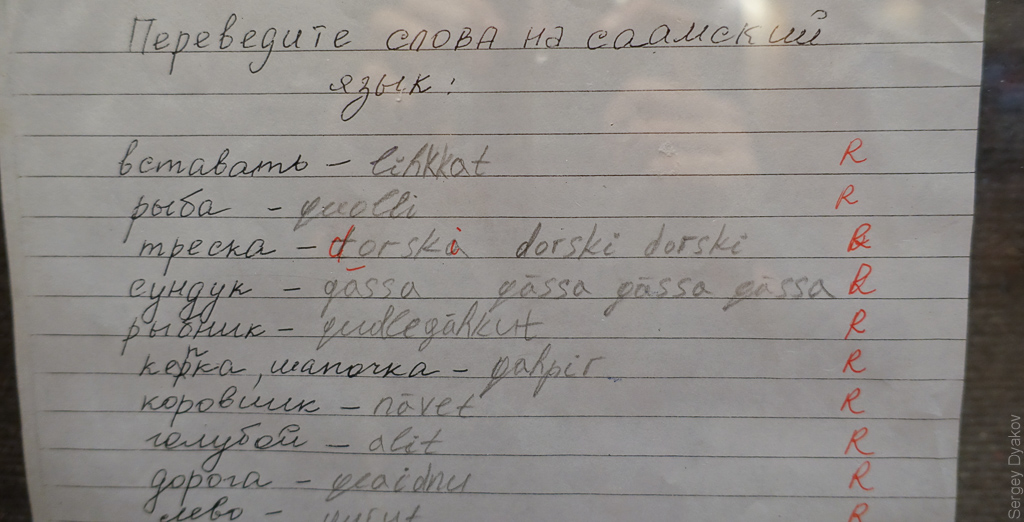 Переведите слова на саамский
язык:
вставать – lihkkat R
рыба – guolli R
треска – dorski dorski dorski R
сундук – gāssa gāssa gāssa gāssa R
рыбник – guollegāhkut R
кепка, шапочка – gahpir R
коровник – nāvet R
голубой – alit R
дорога – geaidnu R
лево – R
Sergey Dyakov